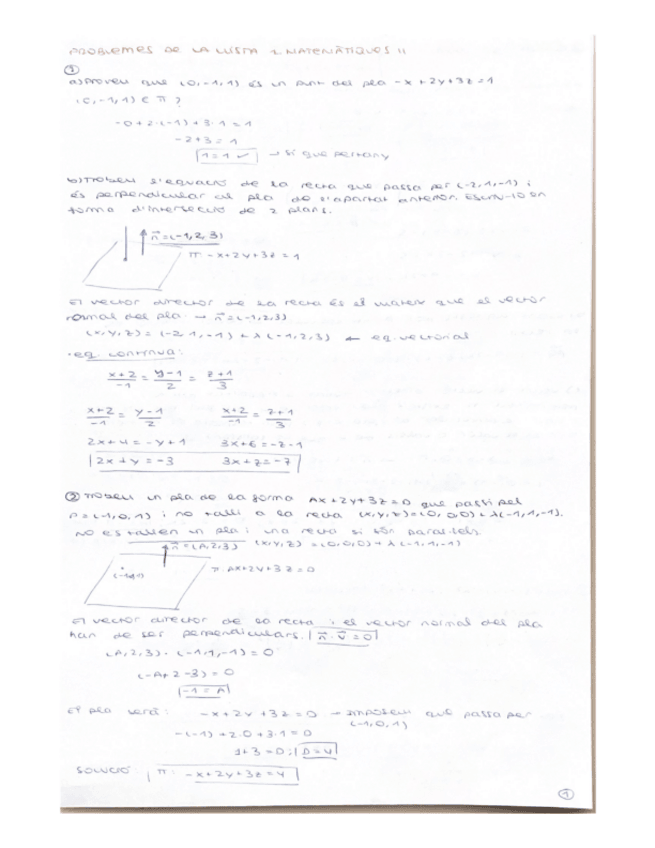 PROBLEMES DE LA LLISTA 2. MATEMÀTIQUES II
①
a) Proveu que (0,-1,1) és un punt del pla -x+2y+3z=1
·(0,-1,1) ∈ π?
-0+2·(-1)+3·1=1
-2+3=1
1=1 ✓ → Sí que pertany
b) Trobeu l'equació de la recta que passa per (-2,1,-1) i
és perpendicular al pla de l'apartat anterior. Escriviu-lo en
forma d'intersecció de 2 plans.
n=(-1,2,3)
π: -x+2y+3z=1
El vector director de la recta és el mateix que el vector
normal del pla. → n=(-1,2,3)
(x,y,z)=(-2,1,-1)+λ(-1,2,3) ← eq. vectorial
·eq. contínua:
x+2/-1 = y-1/2 = z+1/3
x+2/-1 = y-1/2 x+2/-1 = z+1/3
2x+4=-y+1 3x+6=-z-1
2x+y=-3 3x+z=-7
② Trobeu un pla de la forma Ax+2y+3z=D que passi pel
P=(-1,0,1) i no talli a la recta (x,y,z)=(0,0,0)+λ(-1,1,-1).
No es tallen un pla i una recta si són paral·lels.
n=(A,2,3) (x,y,z)=(0,0,0)+λ(-1,1,-1)
π: Ax+2y+3z=D
El vector director de la recta i el vector normal del pla
han de ser perpendiculars. n·v=0
(A,2,3)·(-1,1,-1)=0
(-A+2-3)=0
-1=A
El pla serà: -x+2y+3z=D → Imposem que passa per
(-1,0,1)
-(-1)+2·0+3·1=D
1+3=D; D=4
SOLUCIÓ: π: -x+2y+3z=4
①